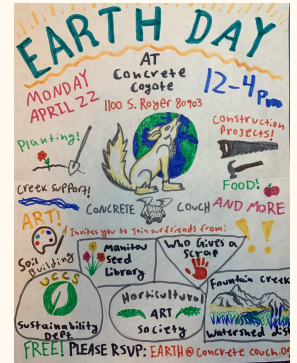 EARTH DAY
AT
Concrete
Coyote
MONDAY
APRIL 22
12-4 pm
1100 S. Royer 80903
Planting!
Construction
Projects!
Creek Support!
FOOD!
AND MORE
CONCRETE COUCH
ART!
Invites you to Join our friends from:
Soil
Building
Manitou
Seed
Library
Who Gives a
Scrap
UCCS
Sustainability
Dept.
Horticultural
ART
Society
Fountain Creek
Watershed Dist
FREE! PLEASE RSVP: EARTH@concrete couch.or